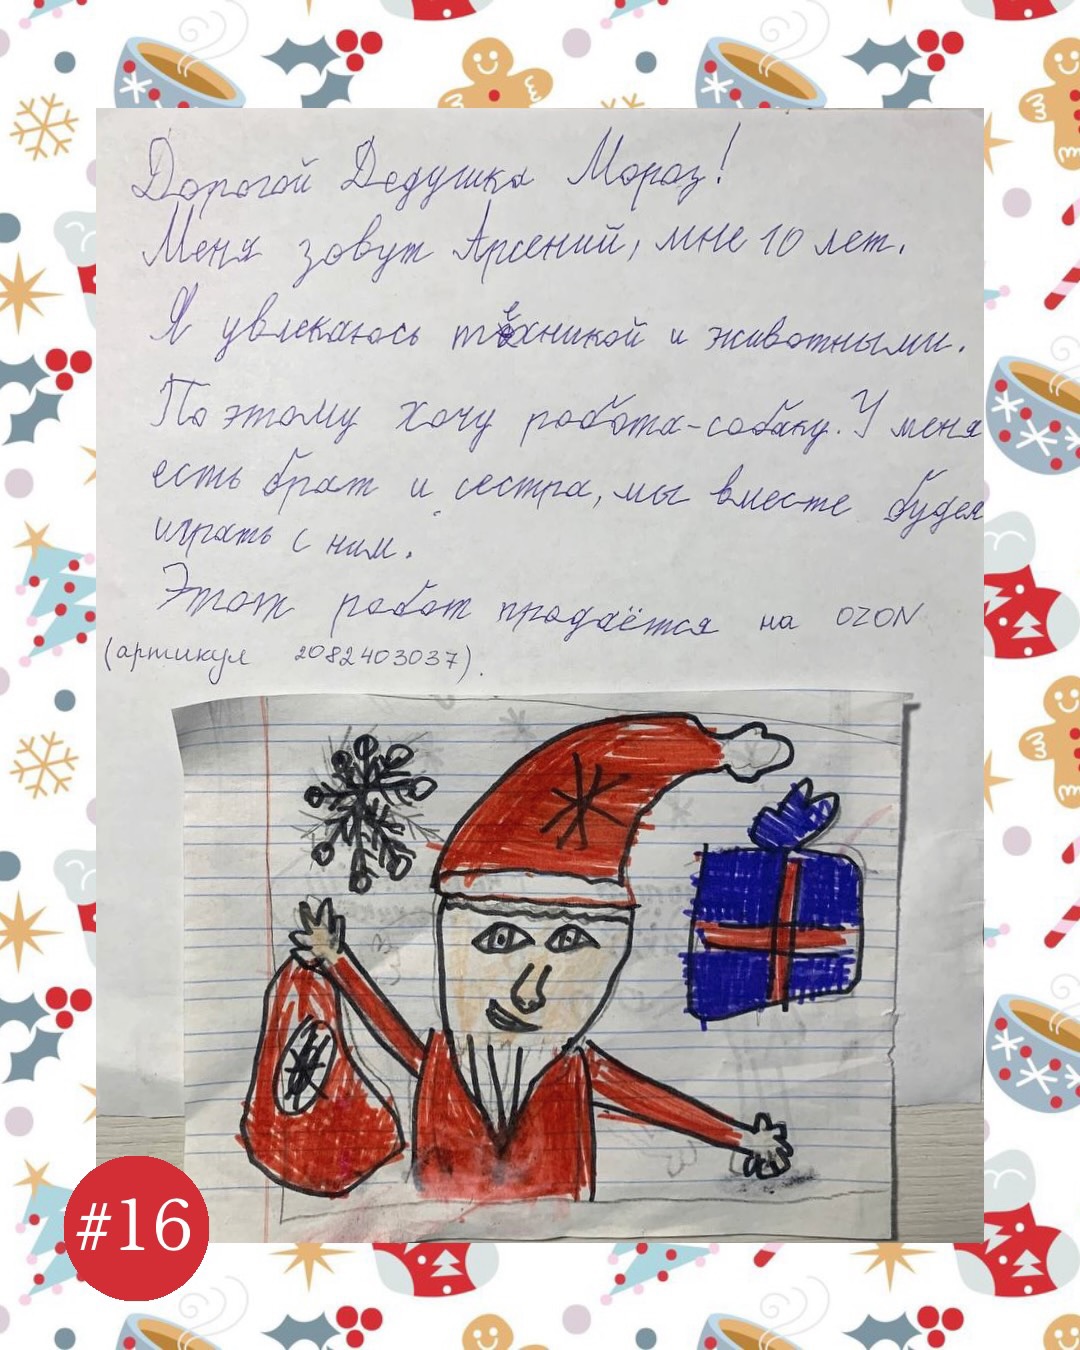 Дорогой Дедушка Мороз!
Меня зовут Арсений, мне 10 лет.
Я увлекаюсь техникой и животными.
По этому хочу робота-собаку. У меня
есть брат и сестра, мы вместе будем
играть с ним.
Этот робот продаётся на OZON
(артикул 2082403037).
#16